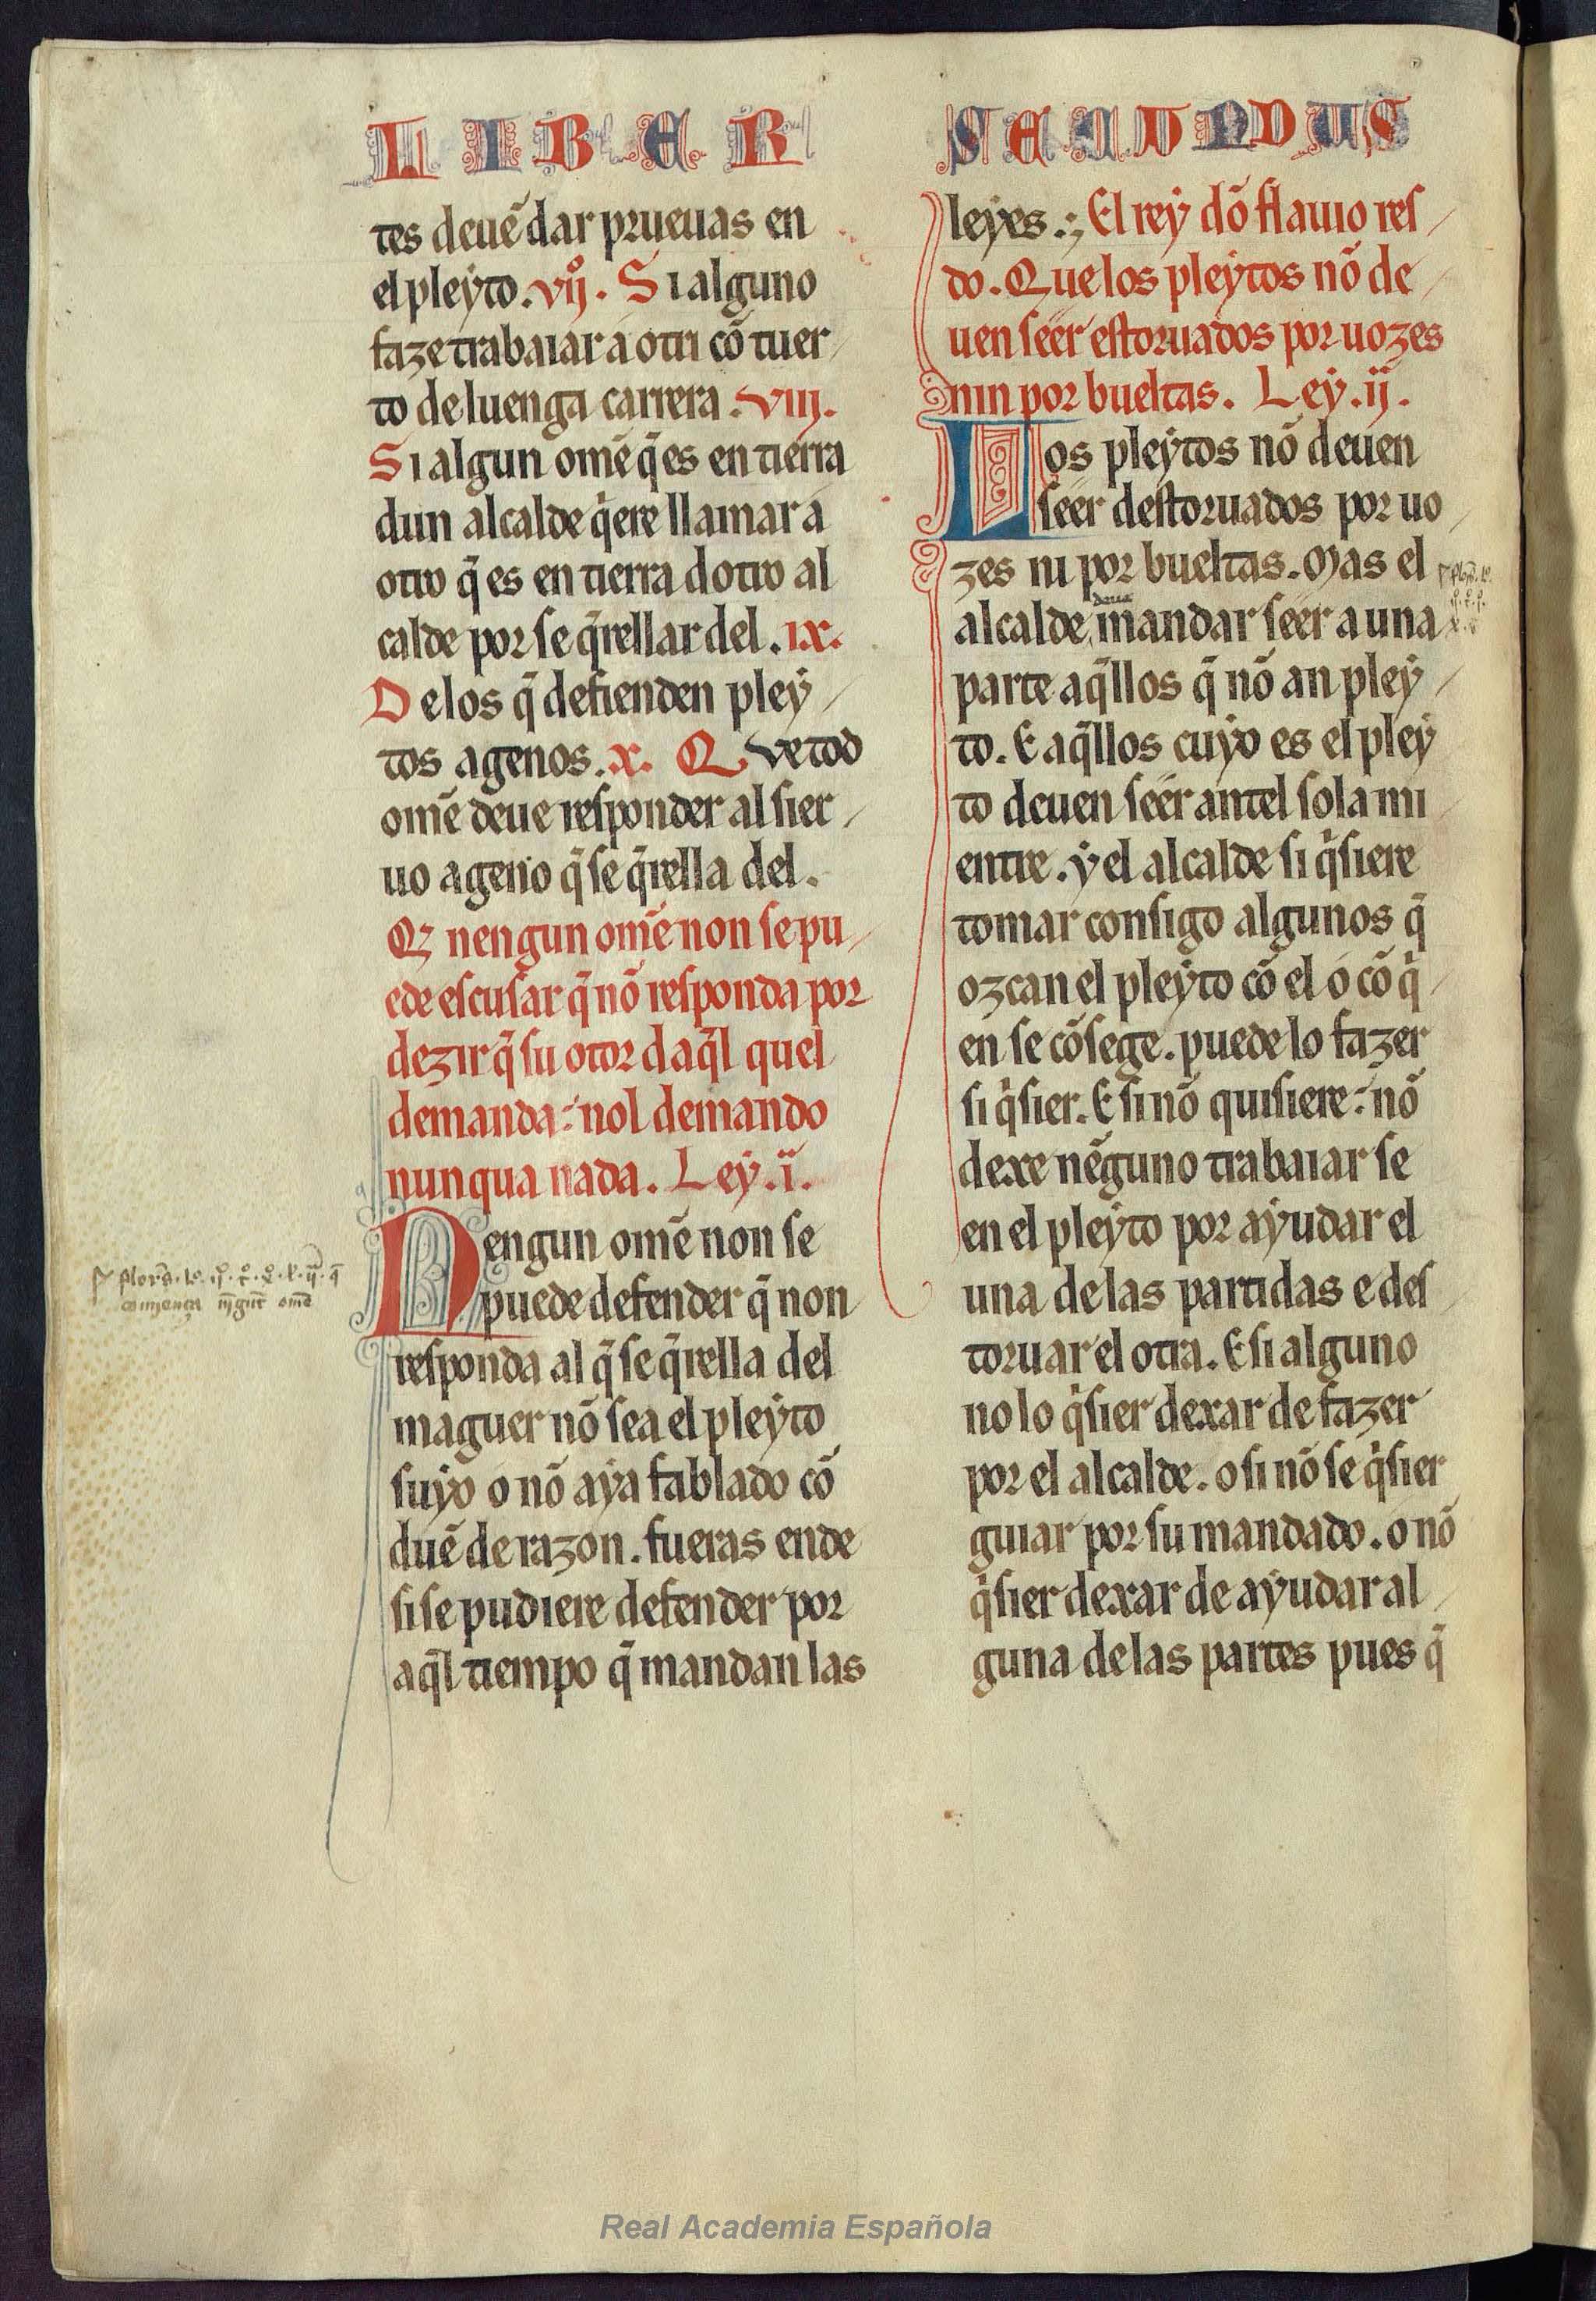 LIBER SECUNDUS
tes deuẽ dar prueuas en
el pleyto .vijº. Si alguno
faze trabaiar a otri cõ tuer
to de luenga carrera .viij.
Si algun omẽ q̃ es en tierra
dun alcalde q̃ere llamar a
otro q̃ es en tierra dotro al
calde por se q̃rellar del .ix.
De los q̃ defienden pley
tos agenos .x. Que tod
omẽ deue responder al sier
uo ageno q̃ se q̃rella del.
Q̃ nengun omẽ non se pu
ede escusar q̃ nõ responda por
dezir q̃ su otor daq̃l quel
demanda: nol demando
nunqua nada. Ley .i.
Nengun omẽ non se
puede defender q̃ non
responda al q̃ se q̃rella del
maguer nõ sea el pleyto
suyo o nõ aya fablado cõ
duẽ de razon. fueras ende
si se pudiere defender por
aq̃l tiempo q̃ mandan las
leyes.; El rey dõ flauio res
do. Que los pleytos nõ de
uen seer estoruados por uozes
nin por bueltas. Ley .ij.
Los pleytos nõ deuen
seer destoruados por uo
zes ni por bueltas. Mas el
deue
alcalde mandar seer a una
parte aq̃llos q̃ nõ an pley
to. E aq̃llos cuyo es el pley
to deuen seer antel sola mi
entre. y el alcalde si q̃siere
tomar consigo algunos q̃
ozcan el pleyto cõ el o cõ q̃
en se cõsege. puede lo fazer
si q̃sier. E si nõ quisiere: nõ
dexe nẽguno trabaiar se
en el pleyto por ayudar el
una de las partidas e des
toruar el otra. E si alguno
no lo q̃sier dexar de fazer
por el alcalde. o si nõ se q̃sier
guiar por su mandado. o nõ
q̃sier dexar de ayudar al
guna de las partes pues q̃
Real Academia Española